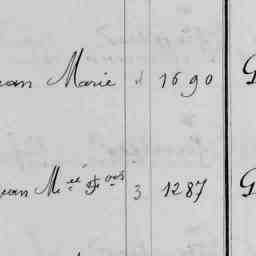 ean Marie d 1690 G
ean M.ee Fçois 3 1287 G